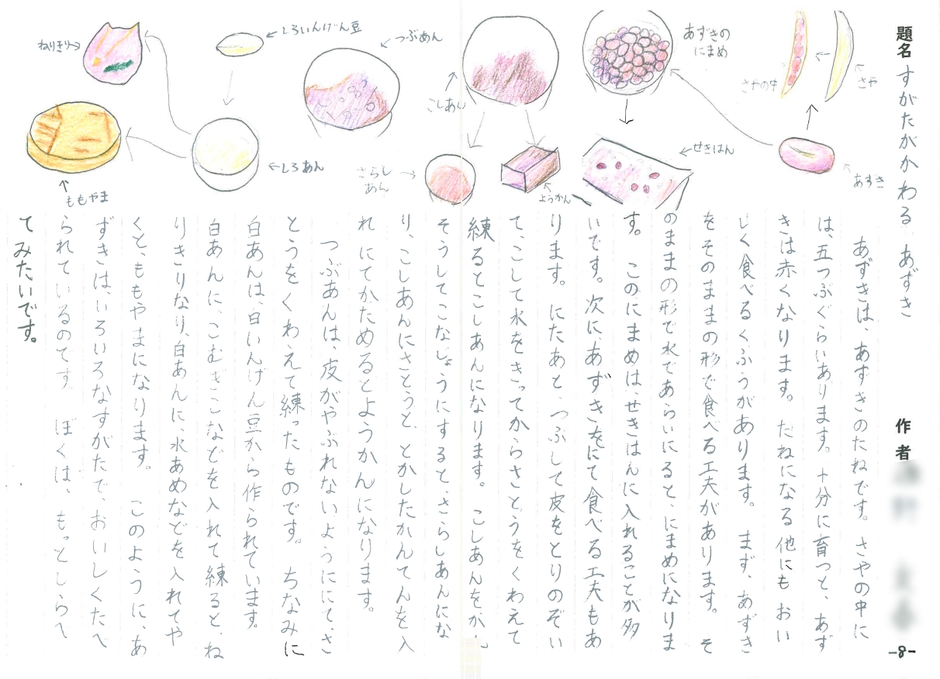 題名 すがたがかわる あずき
作者
あずきは、あずきのたねです。さやの中に
は、五つぶぐらいあります。十分に育つと、あず
きは赤くなります。 たねになる他にも おい
しく食べるくふうがあります。 まず、あずき
をそのままの形で食べる工夫があります。 そ
のままの形で水であらいにると、にまめになりま
す。 このにまめは、せきはんに入れることが多
いです。次にあずきをにて食べる工夫もあ
ります。にたあと、つぶして皮をとりのぞい
て、こして水をきってからさとうをくわえて
練るとこしあんになります。 こしあんをかん
そうしてこなじょうにすると、さらしあんにな
り、こしあんにさとうと、とかしたかんてんを入
れ にてかためるとようかんになります。
つぶあんは、皮がやぶれないようににて、さ
とうをくわえて練ったものです。 ちなみに
白あんは、白いんげん豆から作られています。
白あんに、こむぎこなどを入れて練ると、ね
りきりなり、白あんに、水あめなどを入れてや
くと、ももやまになります。 このように、あ
ずきは、いろいろなすがたで、おいしくたべ
られているのです。 ぼくは、もっとしらべ
てみたいです。
さや
さやの中
あずき
あずきの
にまめ
せきはん
こしあん
ようかん
さらし
あん
つぶあん
しろいんげん豆
しろあん
ねりきり
ももやま
-8-